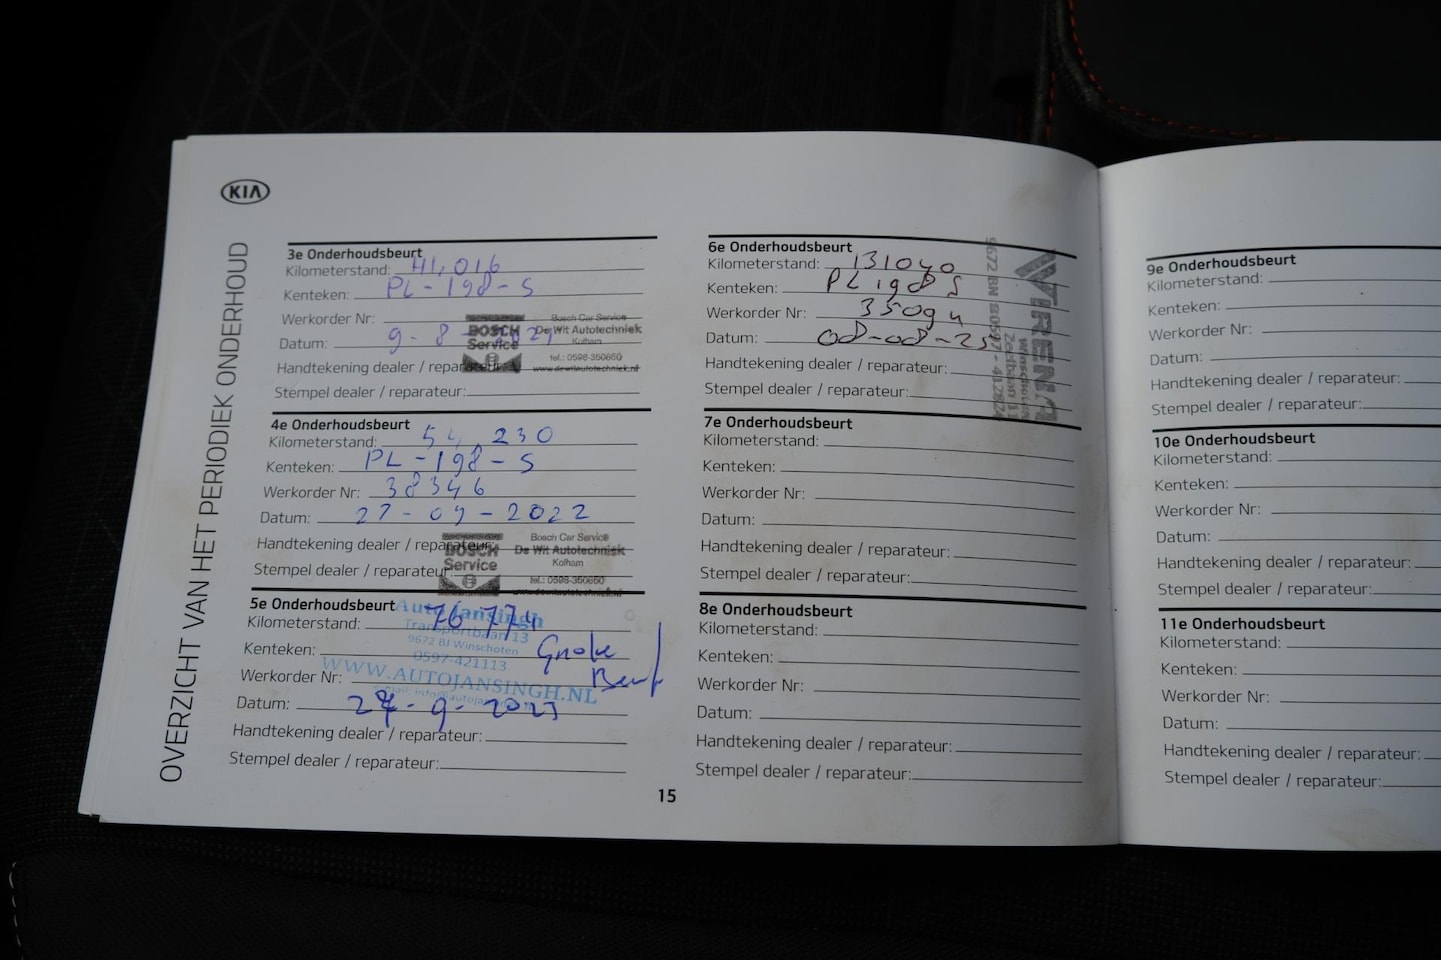 KIA
OVERZICHT VAN HET PERIODIEK ONDERHOUD
3e Onderhoudsbeurt
Kilometerstand: 41,016
Kenteken: PL-198-S
Werkorder Nr:
Datum: 9-8-
Handtekening dealer / reparateur:
Stempel dealer / reparateur:
BOSCH
Service
Bosch Car Service
De Wit Autotechniek
Kolham
tel.: 0598-350650
www.dewitautotechniek.nl
4e Onderhoudsbeurt
Kilometerstand: 54,230
Kenteken: PL-198-S
Werkorder Nr: 38346
Datum: 27-09-2022
Handtekening dealer / reparateur:
Stempel dealer / reparateur:
BOSCH
Service
Bosch Car Service
De Wit Autotechniek
Kolham
tel.: 0598-350650
www.dewitautotechniek.nl
5e Onderhoudsbeurt
Kilometerstand: 76 774
Kenteken:
Werkorder Nr:
Datum: -9-2023
Handtekening dealer / reparateur:
Stempel dealer / reparateur:
Grote
Beurt
Auto Jansingh
Transportbaan 13
9672 BJ Winschoten
0597-421113
WWW.AUTOJANSINGH.NL
15
6e Onderhoudsbeurt
Kilometerstand: 131040
Kenteken: PL198S
Werkorder Nr: 35094
Datum: 08-08-25
Handtekening dealer / reparateur:
Stempel dealer / reparateur:
Winschoten
7e Onderhoudsbeurt
Kilometerstand:
Kenteken:
Werkorder Nr:
Datum:
Handtekening dealer / reparateur:
Stempel dealer / reparateur:
8e Onderhoudsbeurt
Kilometerstand:
Kenteken:
Werkorder Nr:
Datum:
Handtekening dealer / reparateur:
Stempel dealer / reparateur:
9e Onderhoudsbeurt
Kilometerstand:
Kenteken:
Werkorder Nr:
Datum:
Handtekening dealer / reparateur:
Stempel dealer / reparateur:
10e Onderhoudsbeurt
Kilometerstand:
Kenteken:
Werkorder Nr:
Datum:
Handtekening dealer / reparateur:
Stempel dealer / reparateur:
11e Onderhoudsbeurt
Kilometerstand:
Kenteken:
Werkorder Nr:
Datum:
Handtekening dealer / reparateur:
Stempel dealer / reparateur: